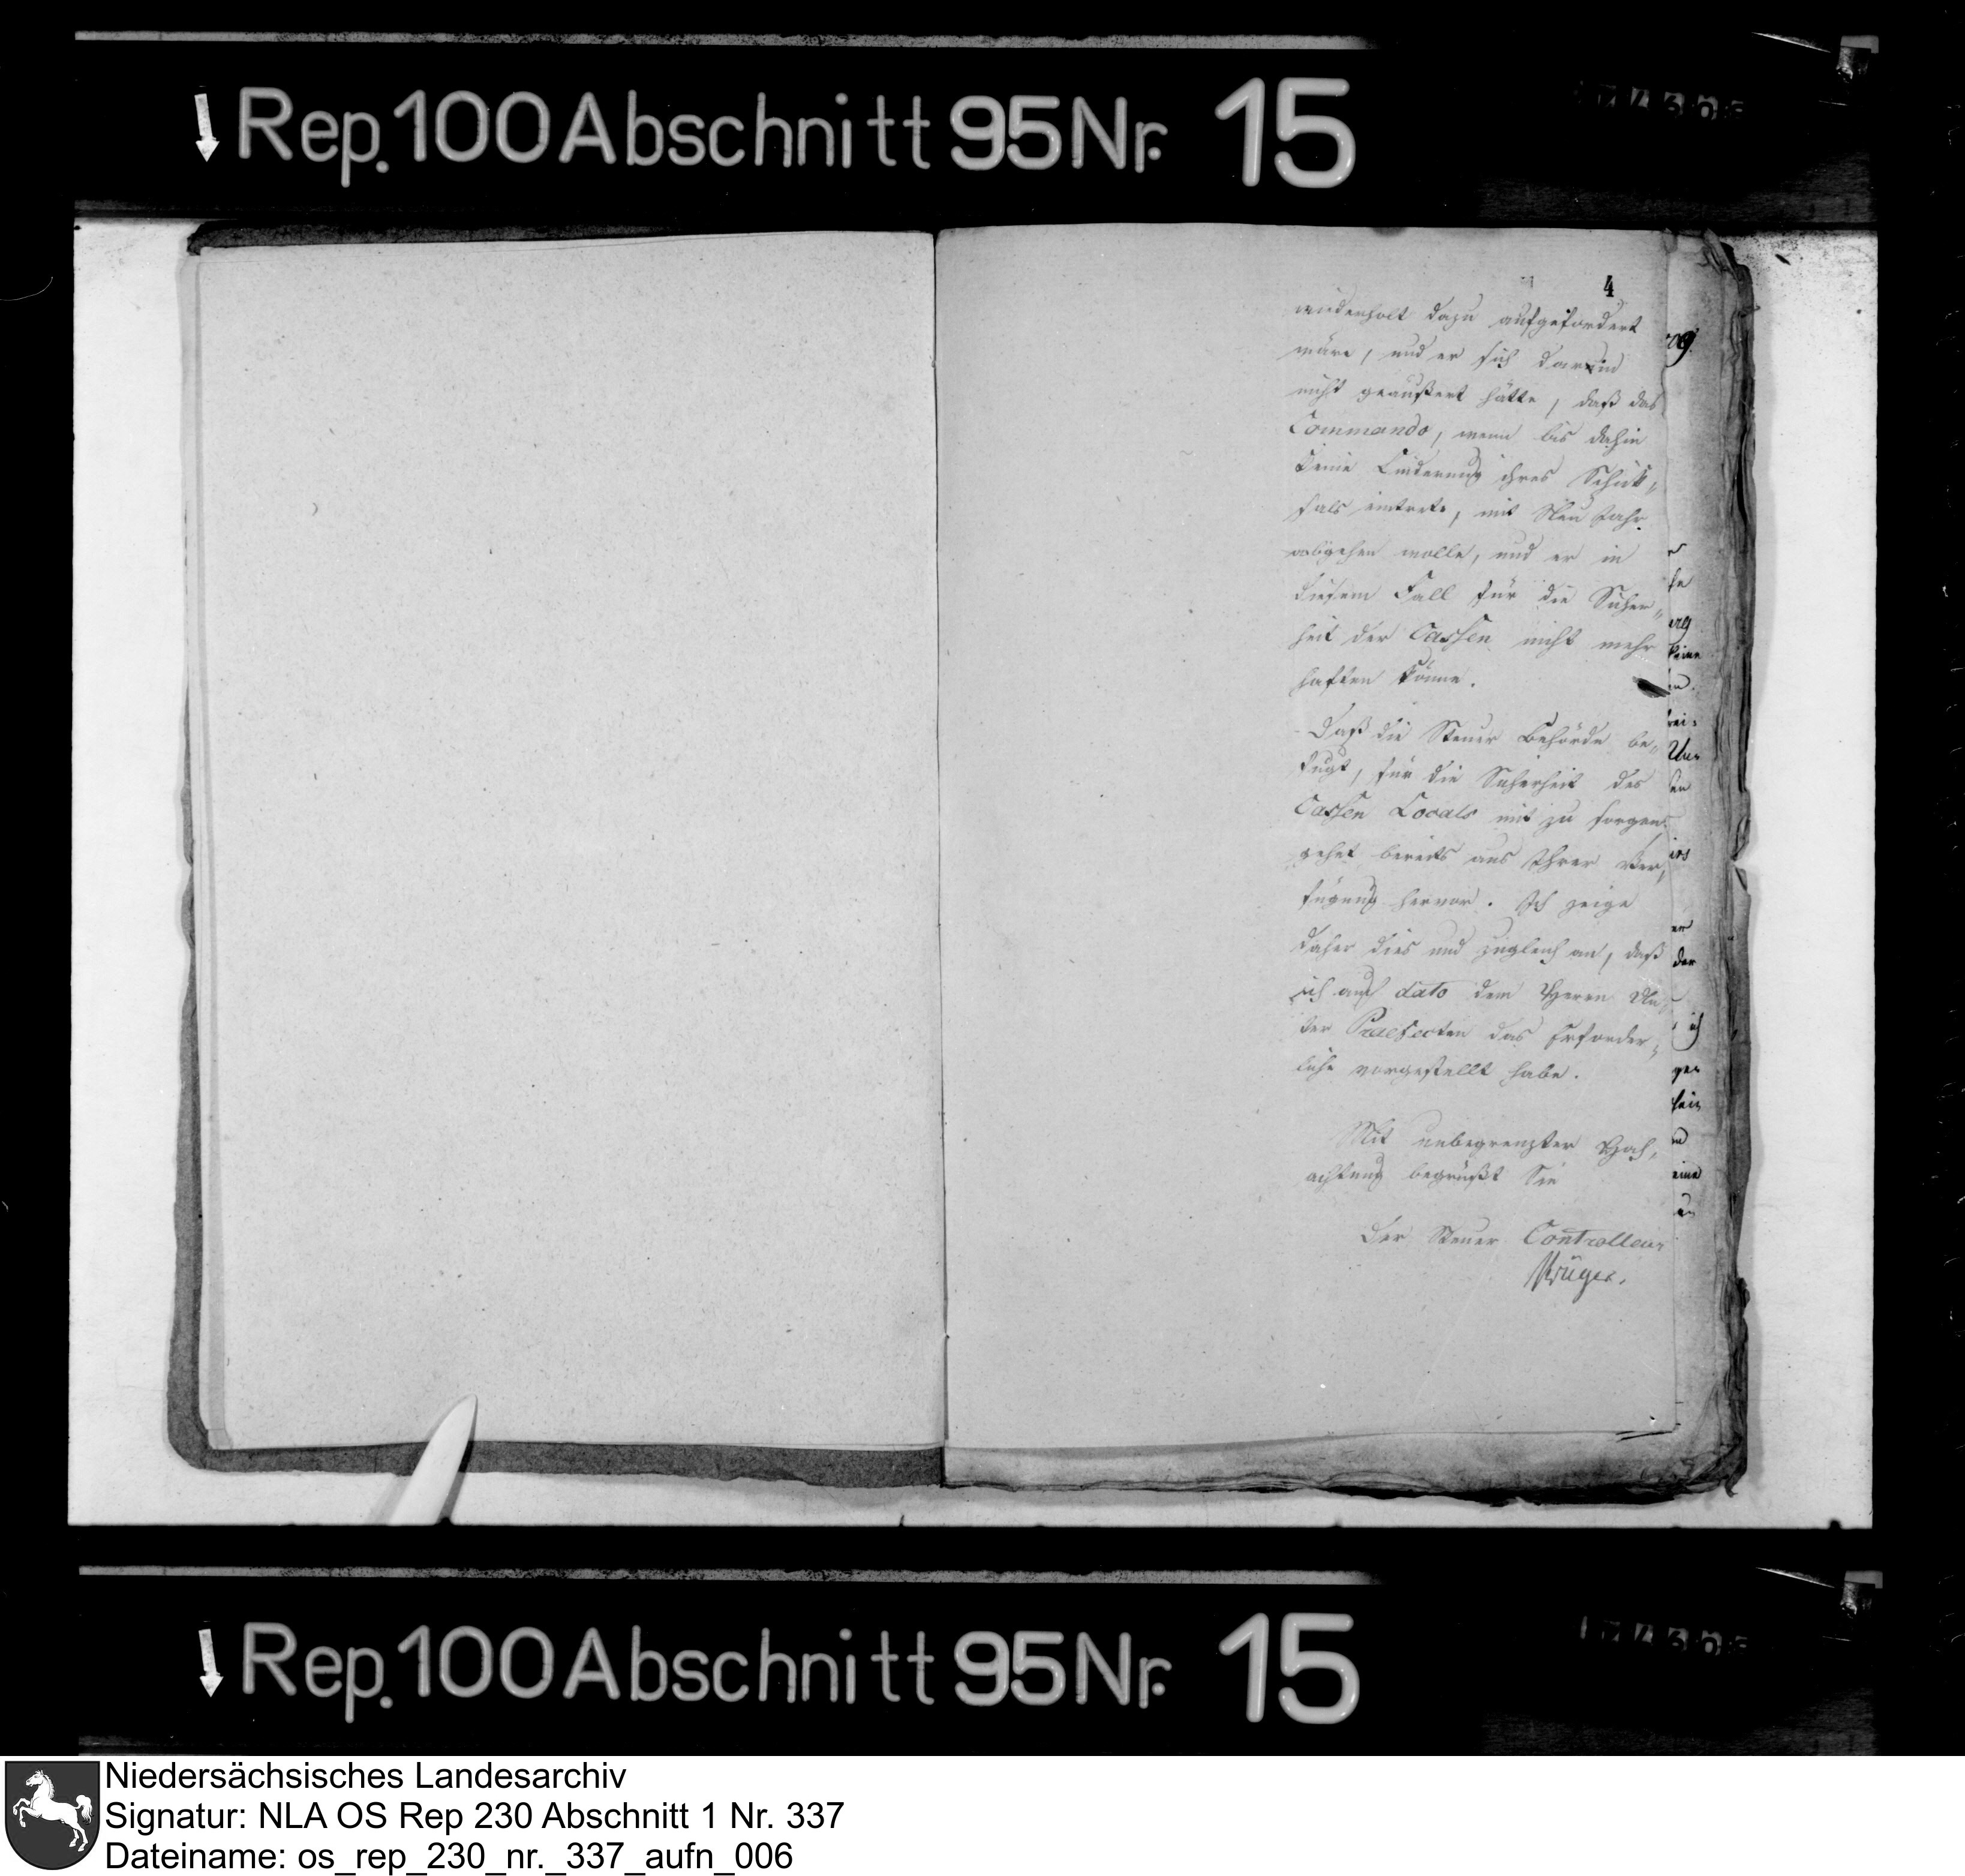 Rep. 100 Abschnitt 95 Nr. 15
4
wiederholt dazu aufgefordert
wäre, und er sich
nicht geäußert hätte, daß das
Commando, wenn bis dahin
keine Linderung ihres Schick„
sals eintrete, mit Neu Jahr
abgehen wolle, und er in
diesem Fall für die Sicher„
heit der Cassen nicht mehr
haften könne.
Daß die Steuer Behörde be„
fugt, für die Sicherheit des
Cassen Locals mit zu sorgen
gehet bereits aus Ihrer Ver„
fügung hervor. Ich zeige
daher dies und zugleich an, daß
ich auf dato dem Herrn Un„
ter Praefecten das Erforder„
liche vorgestellt habe.
Mit unbegrenzter Hoch„
achtung begrüßt Sie
Der Steuer Controlleur
Krüger.
Rep. 100 Abschnitt 95 Nr. 15
Niedersächsisches Landesarchiv
Signatur: NLA OS Rep 230 Abschnitt 1 Nr. 337
Dateiname: os_rep_230_nr._337_aufn_006